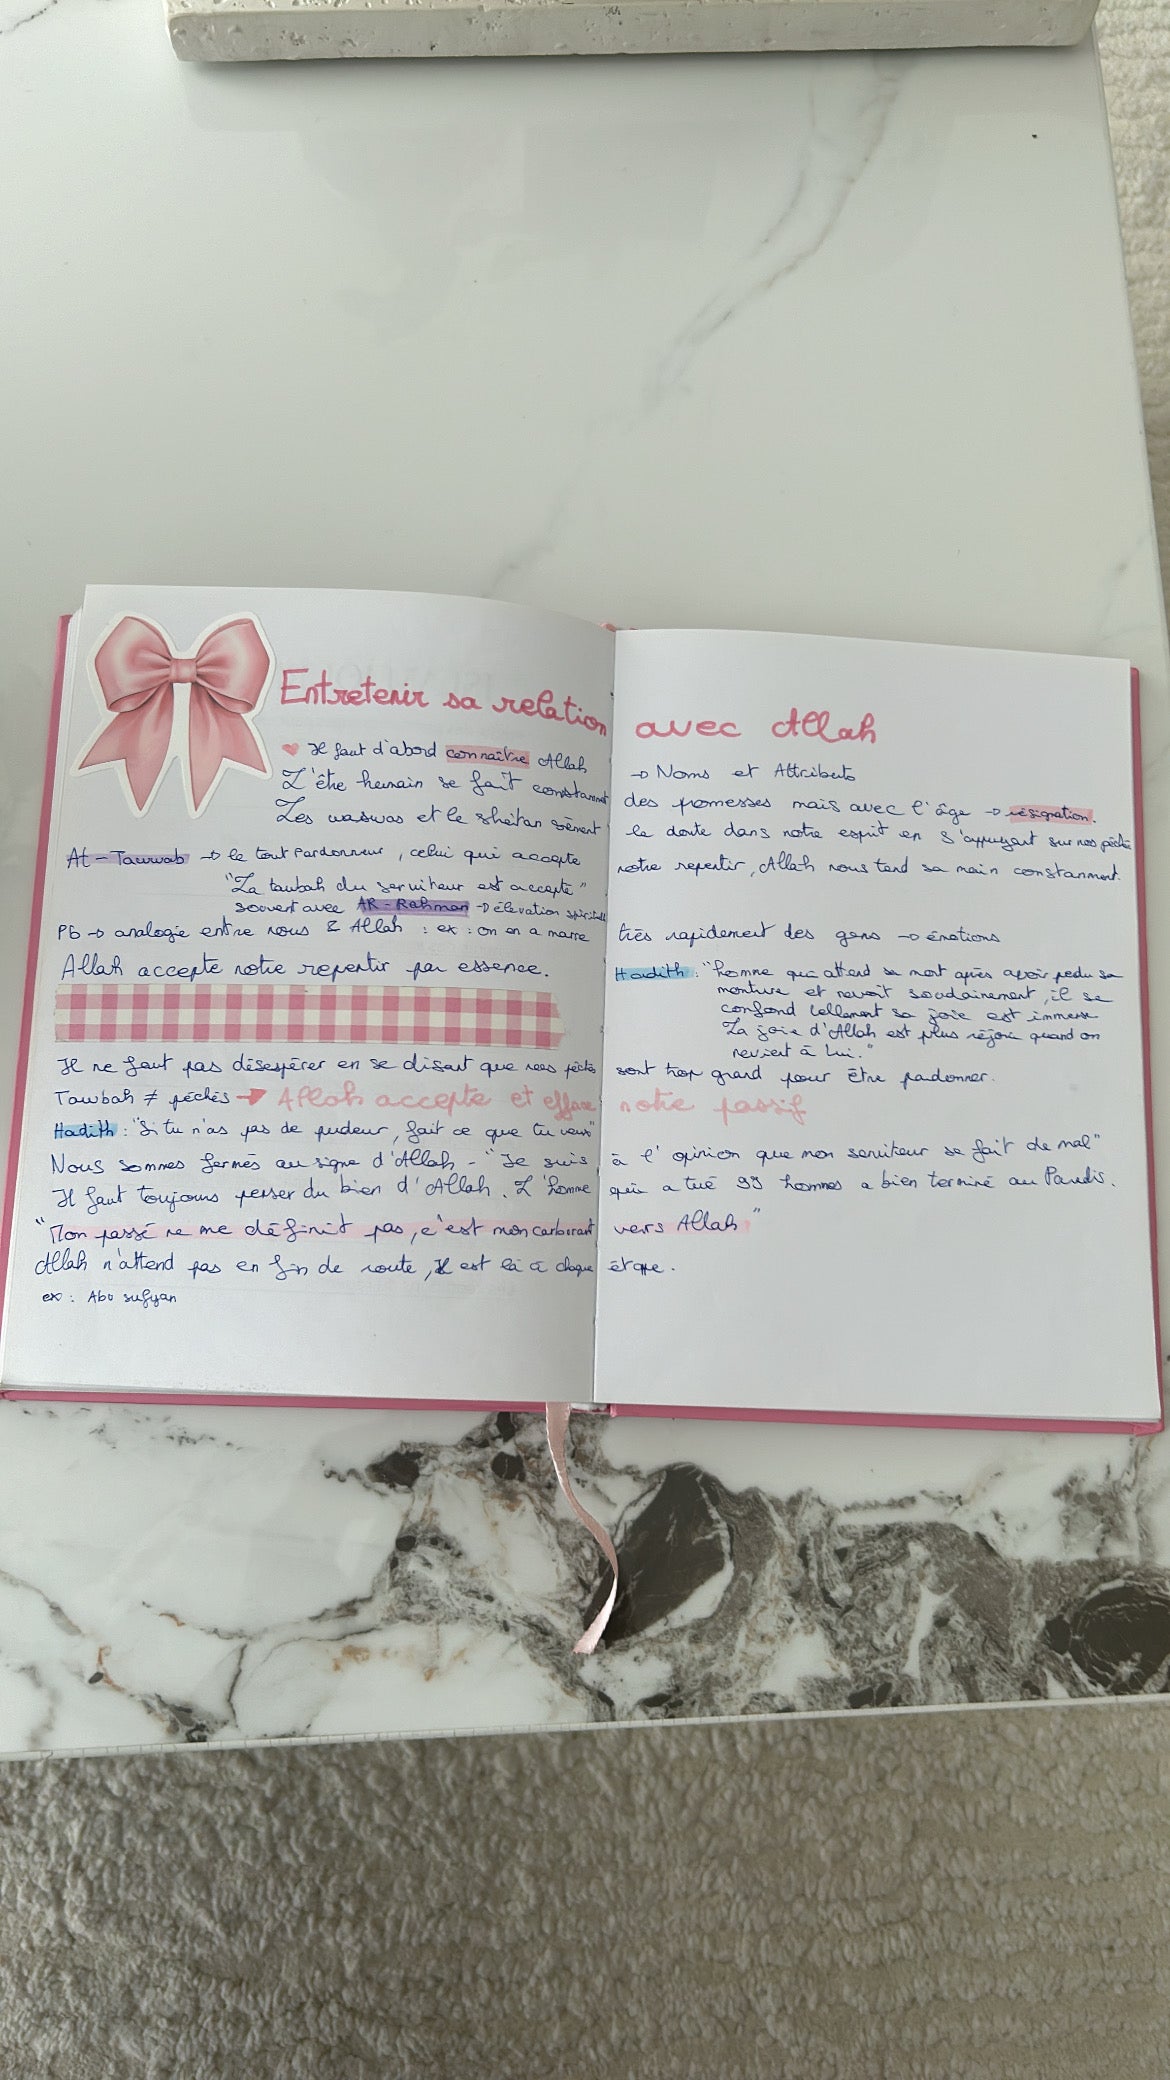 Entretenir sa relation avec Allah
♥ Il faut d'abord connaître Allah → Noms et Attributs
L'être humain se fait constamment des promesses mais avec l'âge → résignation.
Les waswas et le sheitan sèment le doute dans notre esprit en s'appuyant sur nos péchés
At-Tawwab → le tout Pardonneur, celui qui accepte notre repentir, Allah nous tend sa main constamment.
"La taubah du serviteur est accepte"
souvent avec AR-Rahman → élevation spirituelle
Pb → analogie entre nous & Allah : ex : on en a marre très rapidement des gens → émotions
Allah accepte notre repentir par essence.
Hadith : "homme qui attend sa mort après avoir perdu sa
monture et revoit soudainement, il se
confond tellement sa joie est immense
La joie d'Allah est plus réjoui quand on
revient à lui."
Il ne faut pas désespérer en se disant que nos péchés sont trop grand pour être pardonner.
Tawbah ≠ péchés → Allah accepte et efface notre passif
Hadith : "Si tu n'as pas de pudeur, fait ce que tu veux"
Nous sommes fermés au signe d'Allah - "Je suis à l'opinion que mon serviteur se fait de moi"
Il faut toujours penser du bien d'Allah. L'homme qui a tué 99 hommes a bien terminé au Paradis.
"Mon passé ne me définit pas, c'est mon carburant vers Allah"
Allah n'attend pas en fin de route, Il est là à chaque étape.
ex : Abu sufyan